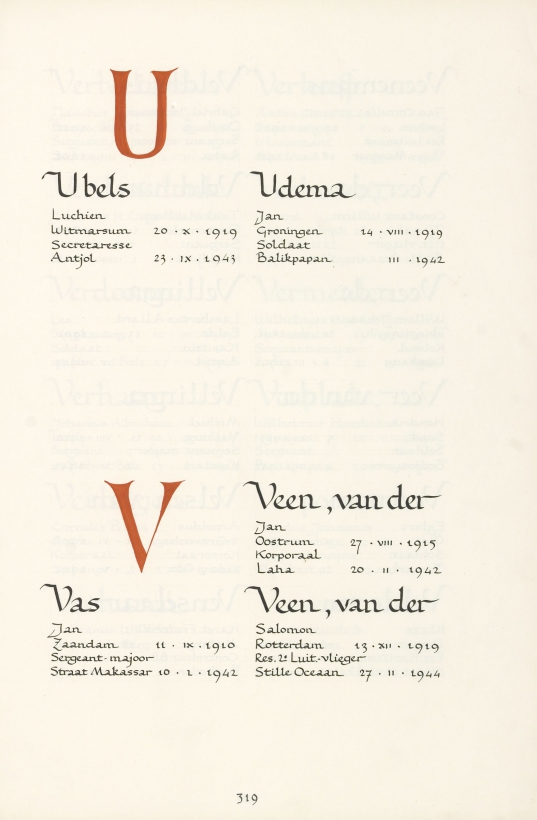 U
Ubels
Luchien
Witmarsum 20 · X · 1919
Secretaresse
Antjol 23 · IX · 1943
Udema
Jan
Groningen 14 · VIII · 1919
Soldaat
Balikpapan III · 1942
V
Vas
Jan
Zaandam 11 · IX · 1910
Sergeant-majoor
Straat Makassar 10 · 2 · 1942
Veen, van der
Jan
Oostrum 27 · VIII · 1915
Korporaal
Laha 20 · II · 1942
Veen, van der
Salomon
Rotterdam 13 · XII · 1919
Res. 2e Luit.-vlieger
Stille Oceaan 27 · II · 1944
319